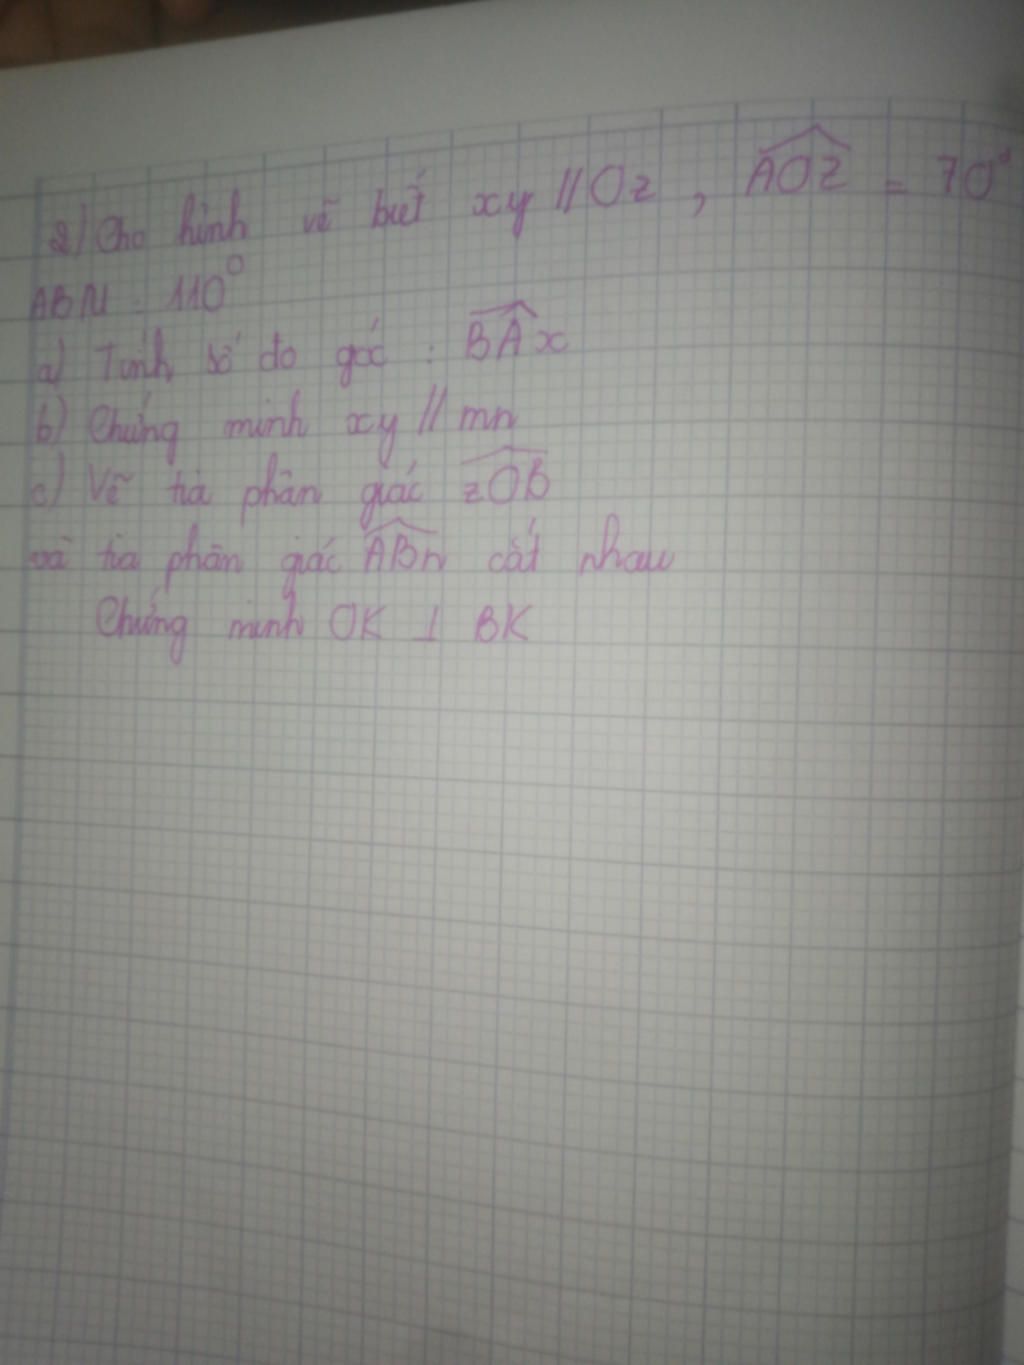 2) Cho hình vẽ biết xy // Oz , AOz = 70°
ABN = 110°
a) Tính số đo góc : BAx
b) Chứng minh xy // mn
c) Vẽ tia phân giác zOB
và tia phân giác ABn cắt nhau
Chứng minh OK ⊥ BK